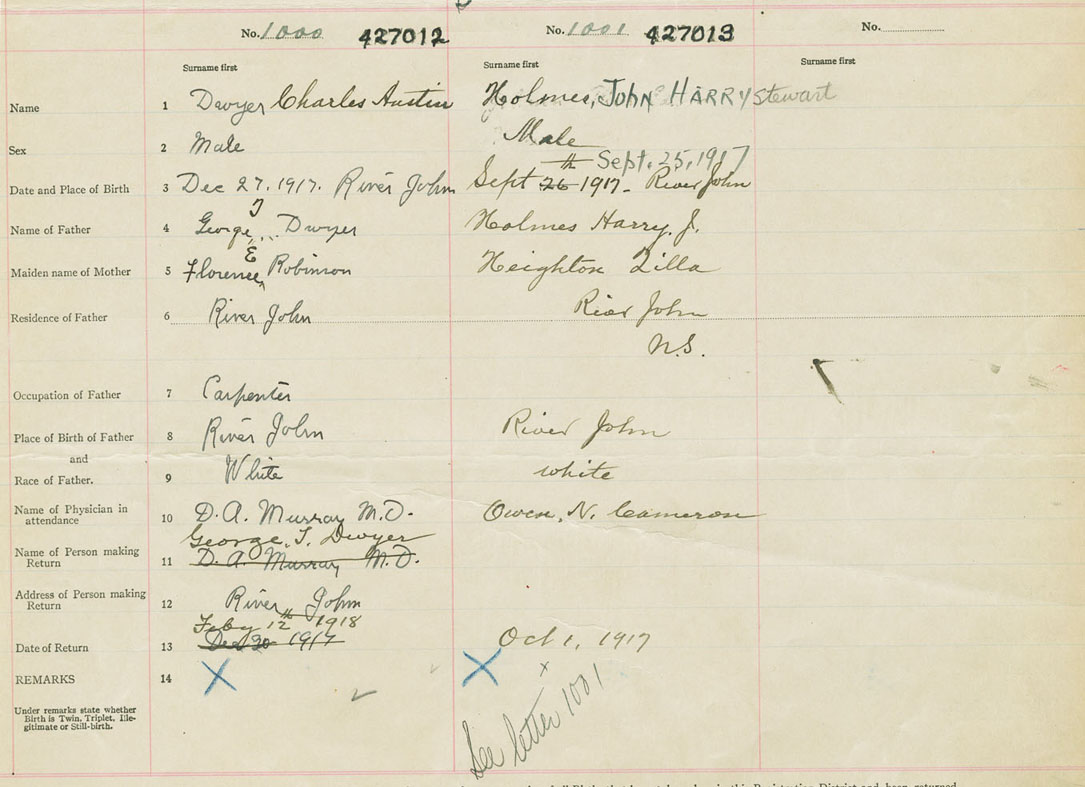 No. 1000 427012 No. 1001 427013 No.
Surname first Surname first Surname first
Name 1 Dwyer Charles Austin Holmes, John HARRY Stewart
Sex 2 Male Male
th Sept. 25, 1917
Date and Place of Birth 3 Dec 27, 1917. River John Sept 26 1917 - River John
T
Name of Father 4 George Dwyer Holmes Harry. J.
E
Maiden name of Mother 5 Florence Robinson Heighton Zilla
Residence of Father 6 River John River John
N.S.
Occupation of Father 7 Carpenter
Place of Birth of Father 8 River John River John
and
Race of Father. 9 White white
Name of Physician in attendance 10 D. A. Murray M.D. Owen. N. Cameron
George. T. Dwyer
Name of Person making Return 11 D. A. Murray M.D.
Address of Person making Return 12 River John
Feby 12th 1918
Date of Return 13 Dec 30 1917 Oct 1, 1917
REMARKS 14 X X
x
See letter 1001
Under remarks state whether
Birth is Twin, Triplet, Ille-
gitimate or Still-birth.